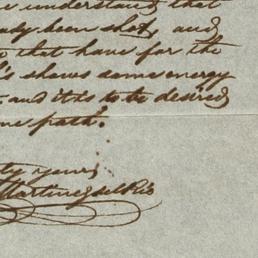 understand that
been shot, and
that have for the
's shows some energy
and it is to be desired
path.
yours
Martinez del Rio